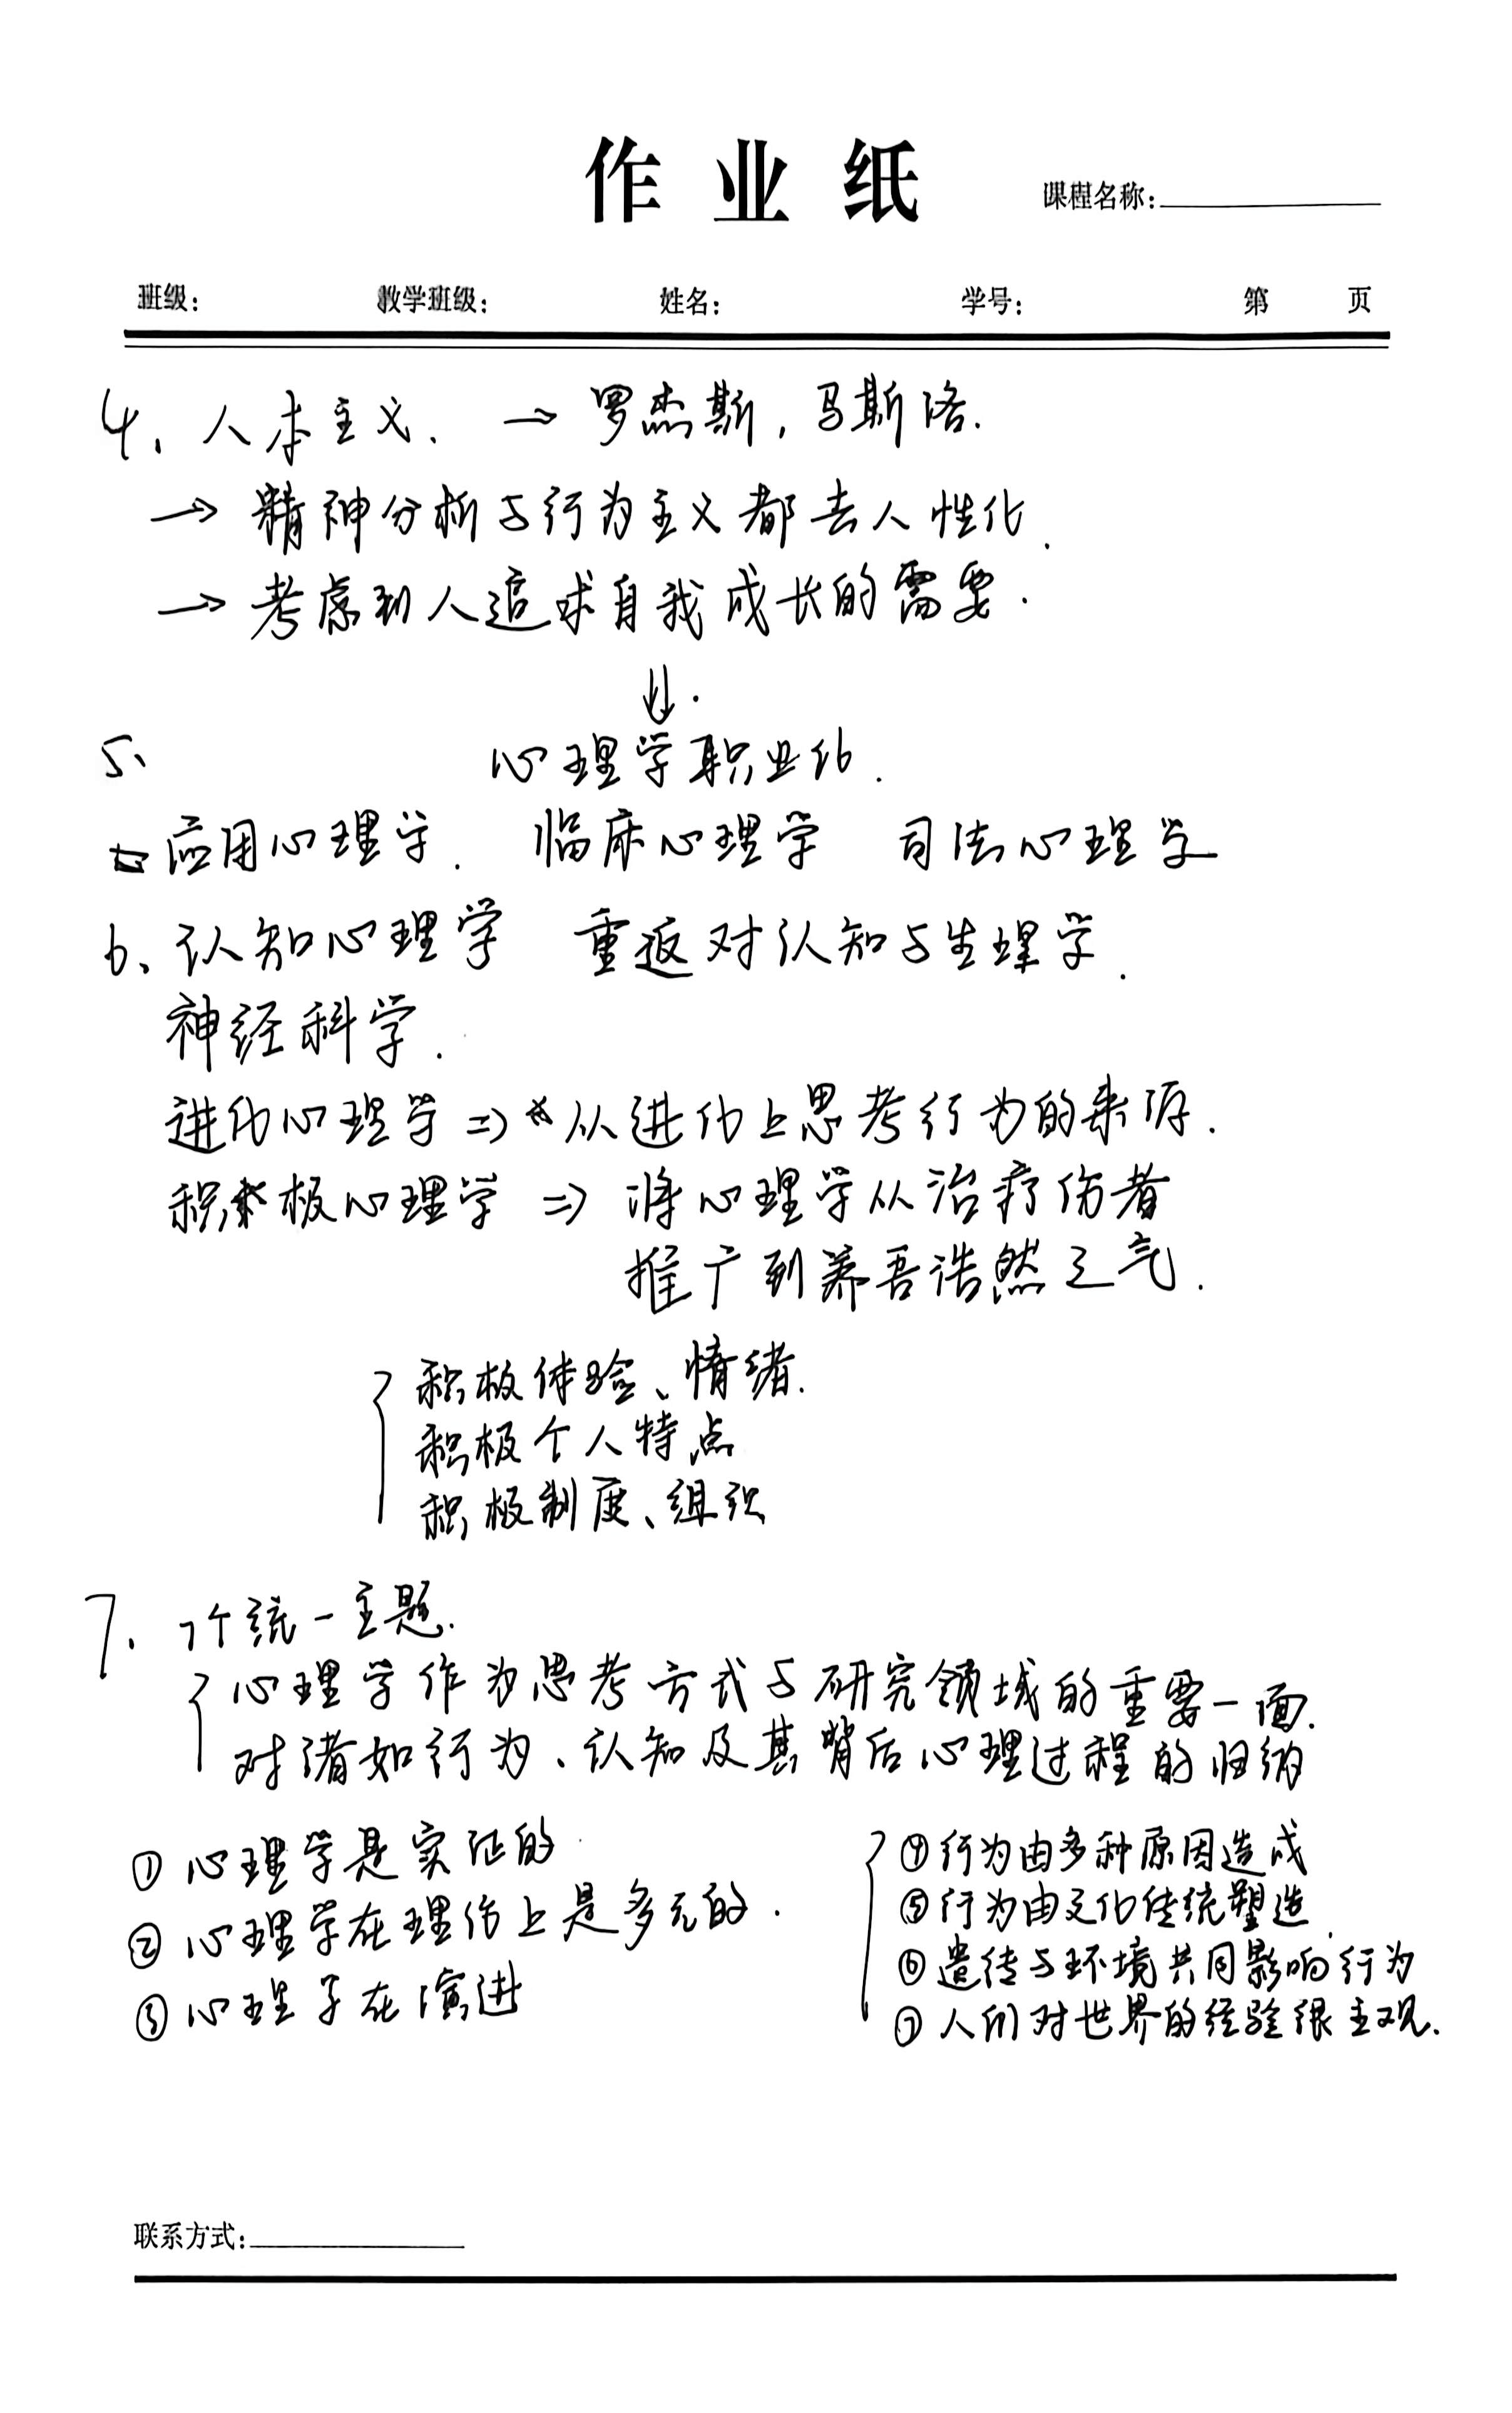 作业纸
课程名称：
班级： 教学班级： 姓名： 学号： 第 页
4、人本主义、→ 罗杰斯，马斯洛.
→ 精神分析与行为主义都去人性化.
→ 考虑到人追求自我成长的需要.
⇓.
5、 心理学职业化.
应用心理学. 临床心理学 司法心理学
6、认知心理学 重返对认知与生理学.
神经科学.
进化心理学 ⇒ 从进化上思考行为的来源.
积极心理学 ⇒ 将心理学从治疗伤者
推广到养吾浩然之气.
积极体验、情绪.
积极个人特点
积极制度、组织
7、7个统一主题.
心理学作为思考方式与研究领域的重要一面.
对诸如行为、认知及其背后心理过程的归纳
① 心理学是实证的
② 心理学在理论上是多元的.
③ 心理学在演进
④ 行为由多种原因造成
⑤ 行为由文化传统塑造.
⑥ 遗传与环境共同影响行为
⑦ 人们对世界的经验很主观.
联系方式：